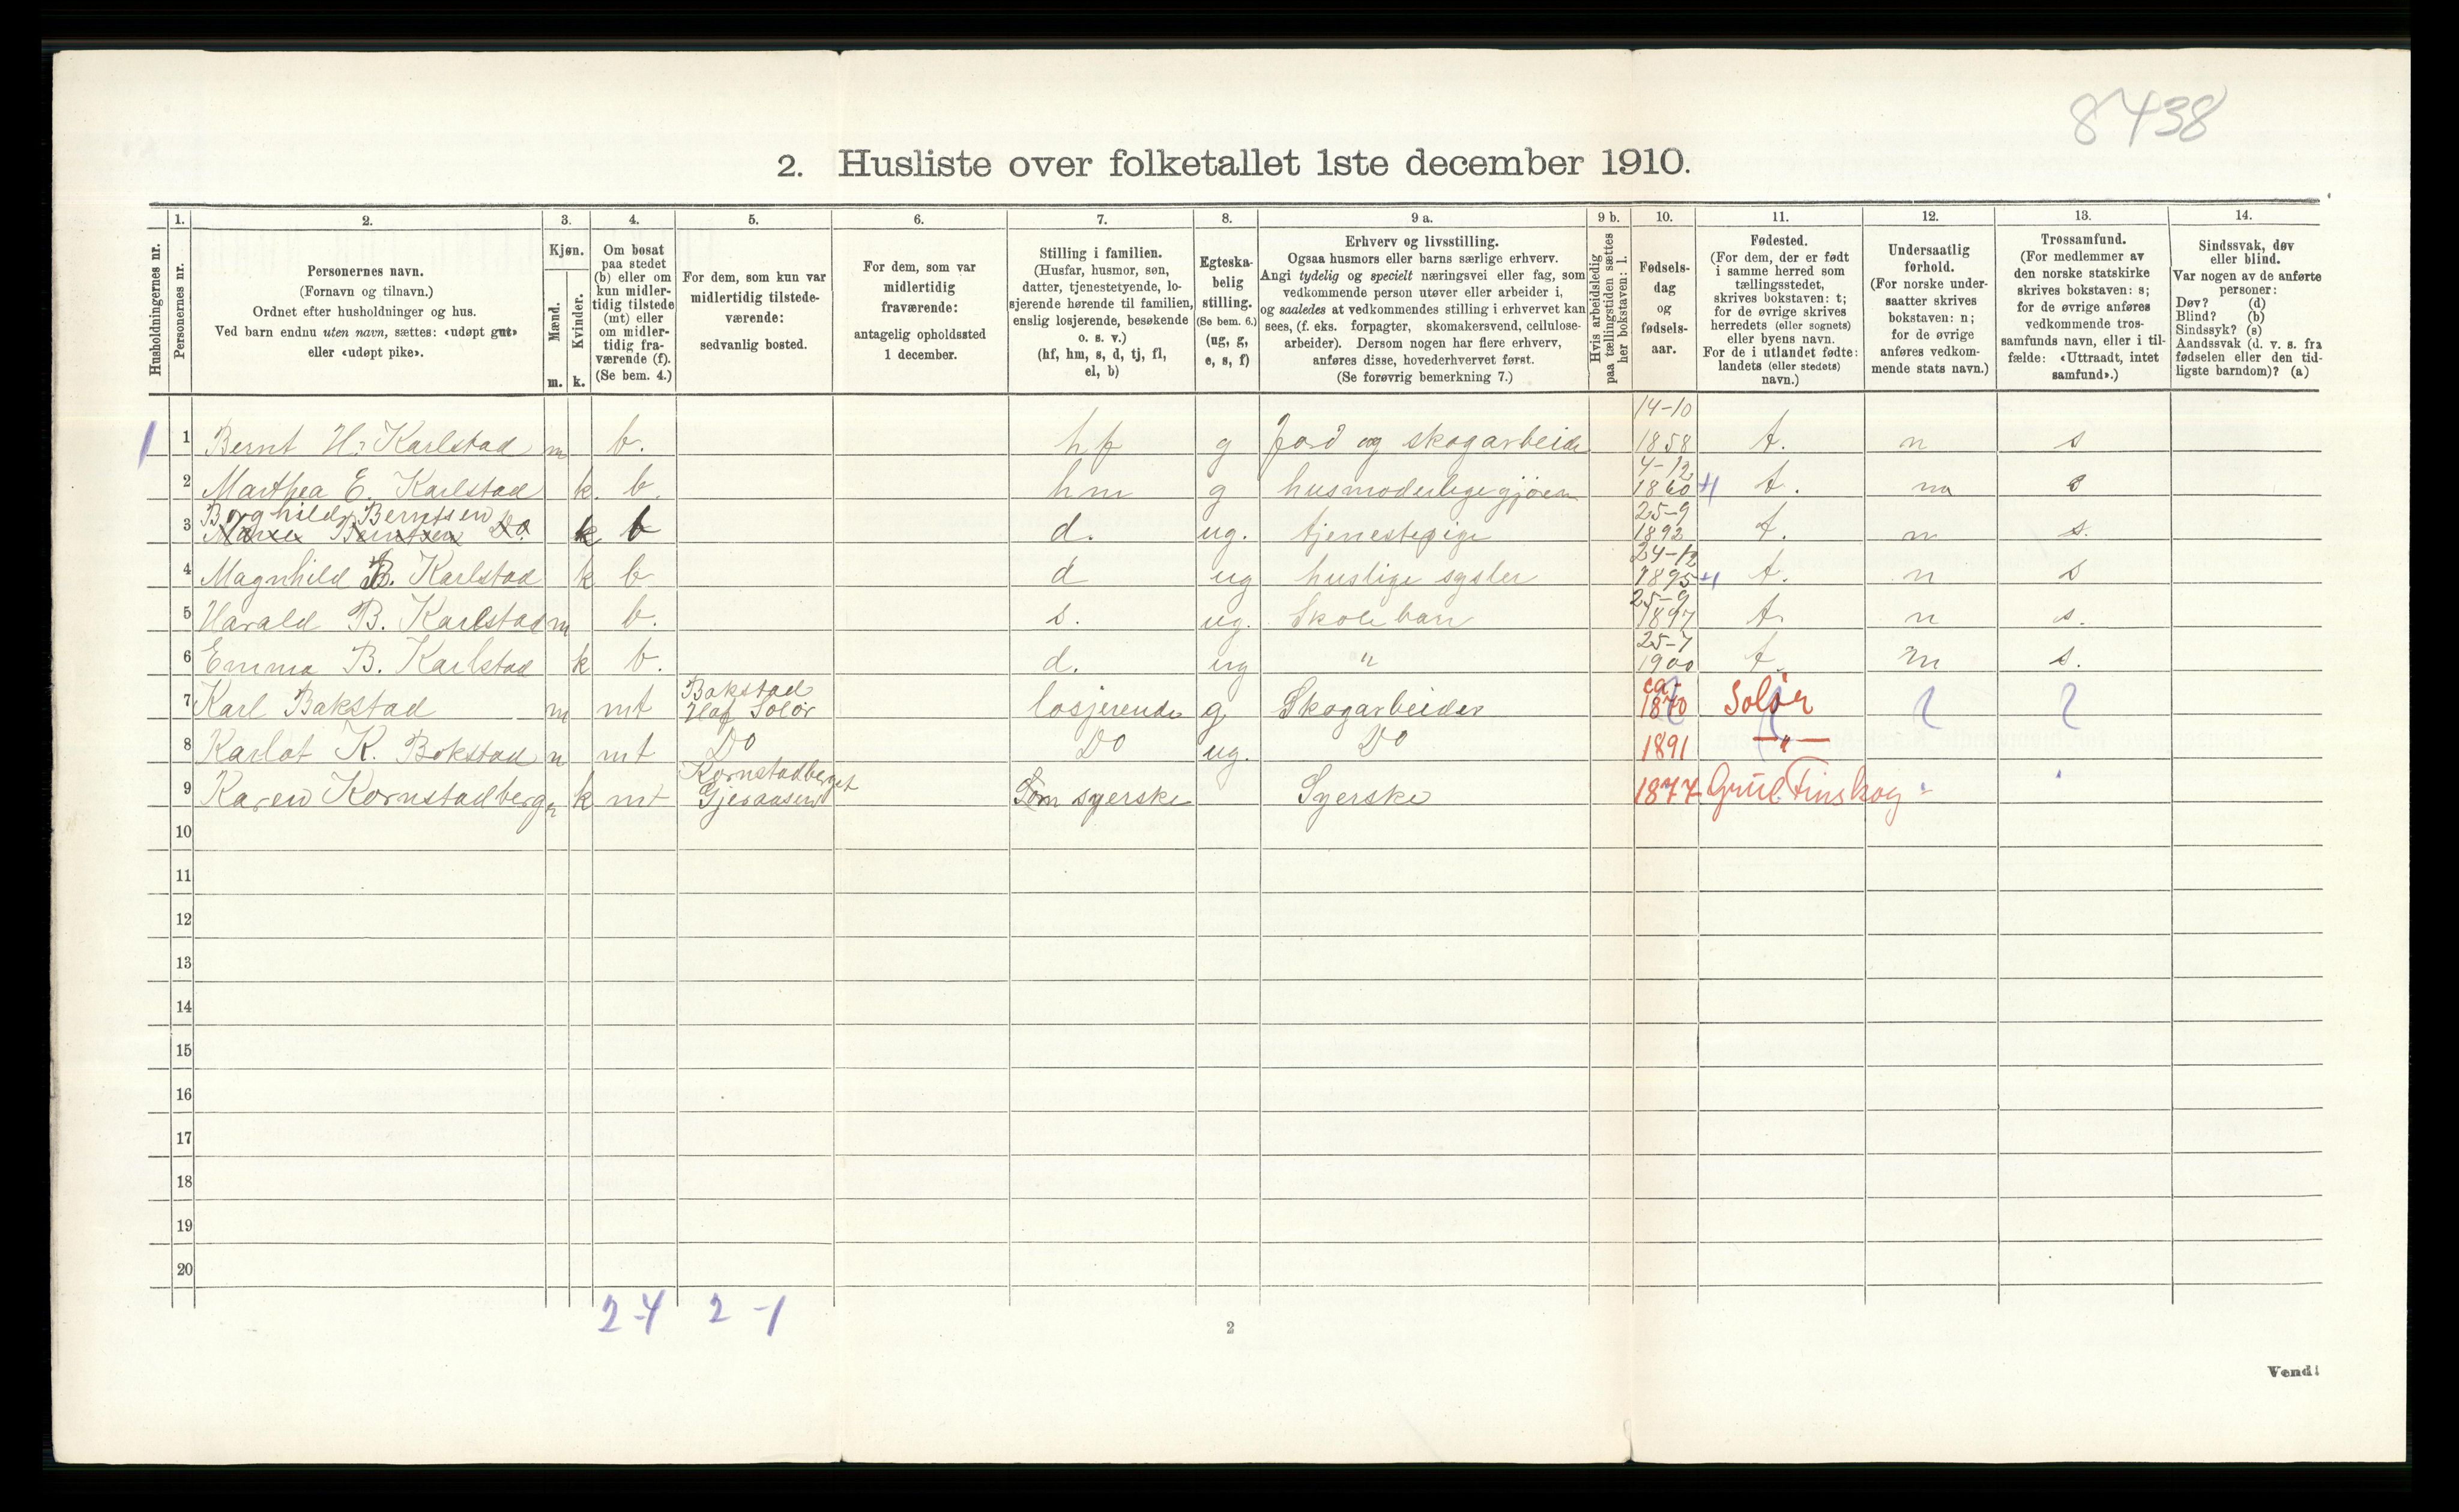 8438
2. Husliste over folketallet 1ste december 1910.
Husholdningernes nr.
1. Personernes nr.
2. Personernes navn.
(Fornavn og tilnavn.)
Ordnet efter husholdninger og hus.
Ved barn endnu uten navn, sættes: «udøpt gut»
eller «udøpt pike».
3. Kjøn.
Mænd. Kvinder.
m. k.
4. Om bosat
paa stedet
(b) eller om
kun midler-
tidig tilstede
(mt) eller
om midler-
tidig fra-
værende (f).
(Se bem. 4.)
5. For dem, som kun var
midlertidig tilstede-
værende:
sedvanlig bosted.
6. For dem, som var
midlertidig
fraværende:
antagelig opholdssted
1 december.
7. Stilling i familien.
(Husfar, husmor, søn,
datter, tjenestetyende, lo-
sjerende hørende til familien,
enslig losjerende, besøkende
o. s. v.)
(hf, hm, s, d, tj, fl,
el, b)
8. Egteska-
belig
stilling.
(Se bem. 6.)
(ug, g,
e, s, f)
9 a. Erhverv og livsstilling.
Ogsaa husmors eller barns særlige erhverv.
Angi tydelig og specielt næringsvei eller fag, som
vedkommende person utøver eller arbeider i,
og saaledes at vedkommendes stilling i erhvervet kan
sees, (f. eks. forpagter, skomakersvend, cellulose-
arbeider). Dersom nogen har flere erhverv,
anføres disse, hovederhvervet først.
(Se forøvrig bemerkning 7.)
9 b. Hvis arbeidsledig
paa tællingstiden sættes
her bokstaven: l.
10. Fødsels-
dag
og
fødsels-
aar.
11. Fødested.
(For dem, der er født
i samme herred som
tællingsstedet,
skrives bokstaven: t;
for de øvrige skrives
herredets (eller sognets)
eller byens navn.
For de i utlandet fødte:
landets (eller stedets)
navn.)
12. Undersaatlig
forhold.
(For norske under-
saatter skrives
bokstaven: n;
for de øvrige
anføres vedkom-
mende stats navn.)
13. Trossamfund.
(For medlemmer av
den norske statskirke
skrives bokstaven: s;
for de øvrige anføres
vedkommende tros-
samfunds navn, eller i til-
fælde: «Uttraadt, intet
samfund».)
14. Sindssvak, døv
eller blind.
Var nogen av de anførte
personer:
Døv? (d)
Blind? (b)
Sindssyk? (s)
Aandssvak (d. v. s. fra
fødselen eller den tid-
ligste barndom)? (a)
14-10
1 1 Bernt H. Karlstad m b. hf g Jord og skogarbeide 1858 t. n s
4-12
2 Marthea E. Karlstad k. b. hm g husmoderlige gjøre 1860 t. n s
Borghild Berntsen 25-9
3 Berntsen Do k b d. ug. tjenestepige 1892 t. n s.
24-12
4 Magnhild B. Karlstad k b d ug huslige sysler 1895 t. n s
25-9
5 Harald B. Karlstad m b. s. ug. Skolebarn 1897 t. n s.
25-7
6 Emma B. Karlstad k b. d. ug " 1900 t. n s.
Bakstad ca.
7 Karl Bakstad m mt Hof Solør losjerende g Skogarbeider 1870 Solør
8 Karlot K. Bokstad m mt Do Do ug. Do 1891 — " —
Kornstadberget
9 Karen Kornstadberg k mt Gjesaasen Som syerske Syerske 1877 Grue Finskog
10
11
12
13
14
15
16
17
18
19
20
2-4 2-1
2
Vend!